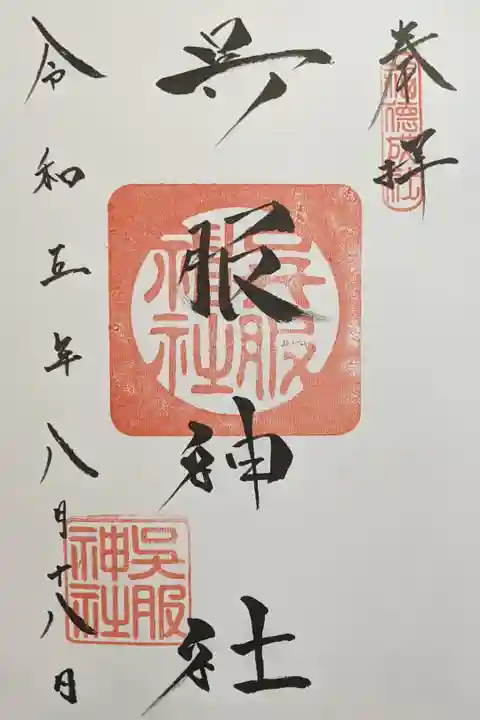 奉拝
福徳神社
呉服神社
呉服神社
呉服神社
令和五年八月十八日